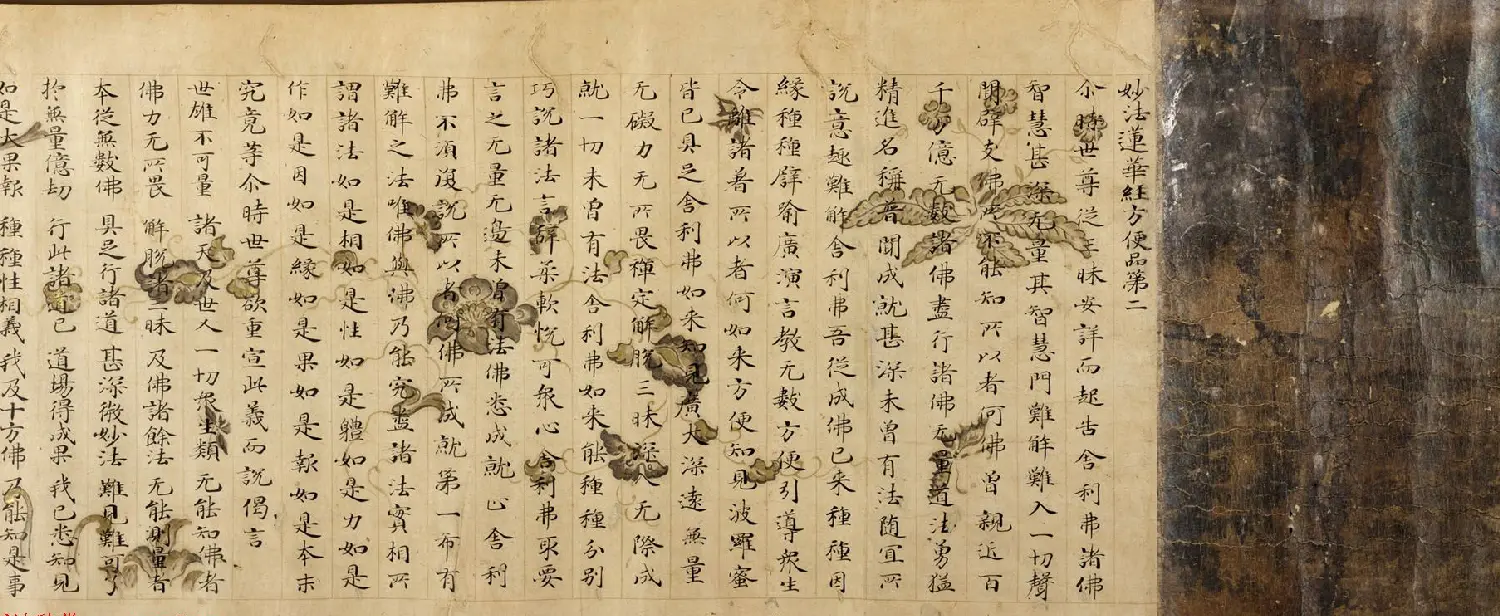 妙法蓮華経方便品第二
尒時世尊從三昧安詳而起告舍利弗諸佛
智慧甚深无量其智慧門難解難入一切聲
聞辟支佛所不能知所以者何佛曾親近百
千万億无數諸佛盡行諸佛无量道法勇猛
精進名稱普聞成就甚深未曾有法随冝所
說意趣難解舍利弗吾從成佛已来種種因
緣種種譬喻廣演言教无數方便引導衆生
令離諸著所以者何如来方便知見波羅蜜
皆已具足舍利弗如来知見廣大深遠無量
无礙力无所畏禪定解脫三昧深入无際成
就一切未曾有法舍利弗如来能種種分別
巧說諸法言辭柔軟恱可衆心舍利弗取要
言之无量无邊未曾有法佛悉成就止舍利
弗不須復說所以者何佛所成就第一希有
難解之法唯佛與佛乃能究盡諸法實相所
謂諸法如是相如是性如是體如是力如是
作如是因如是緣如是果如是報如是本末
究竟等尒時世尊欲重宣此義而說偈言
世雄不可量 諸天及世人 一切衆生類 无能知佛者
佛力无所畏 解脫諸三昧 及佛諸餘法 无能測量者
本從無數佛 具足行諸道 甚深微妙法 難見難可了
於無量億劫 行此諸道已 道場得成果 我已悉知見
如是大果報 種種性相義 我及十方佛 乃能知是事